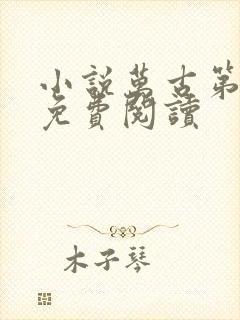 小說萬古第
免費閱讀
木子琴